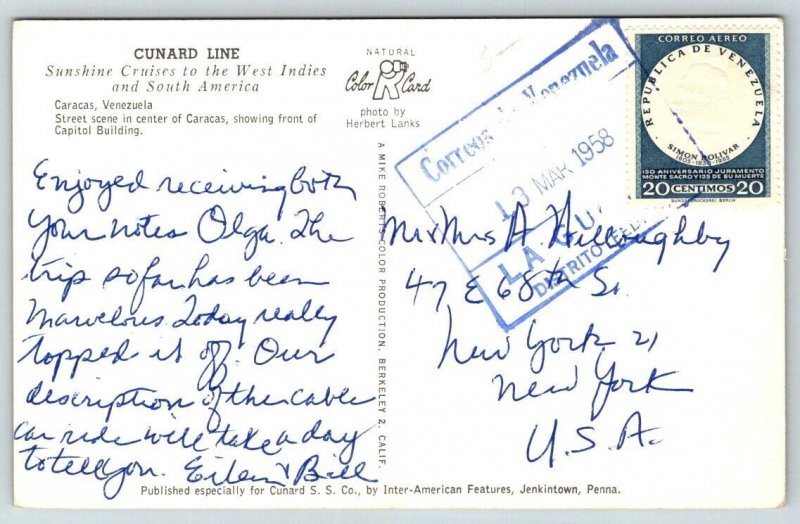 CUNARD LINE
Sunshine Cruises to the West Indies
and South America
Caracas, Venezuela
Street scene in center of Caracas, showing front of
Capitol Building.
NATURAL
Color Card
photo by
Herbert Lanks
Enjoyed receiving both
your notes Olga. The
trip so far has been
marvelous. Today really
topped it off. Our
description of the cable
car ride will take a day
to tell you. Eileen & Bill
A MIKE ROBERTS COLOR PRODUCTION. BERKELEY 2, CALIF.
Correos de Venezuela
13 MAR 1958
LA GU
DISTRITO FED
CORREO AEREO
REPUBLICA DE VENEZUELA
SIMON BOLIVAR
150 ANIVERSARIO JURAMENTO
MONTE SACRO Y 125 DE SU MUERTE
20 CENTIMOS 20
BUNDESDRUCKEREI BERLIN
Mr & Mrs A. Willoughby
47 E 68th St.
New York 21
New York
U.S.A.
Published especially for Cunard S. S. Co., by Inter-American Features, Jenkintown, Penna.